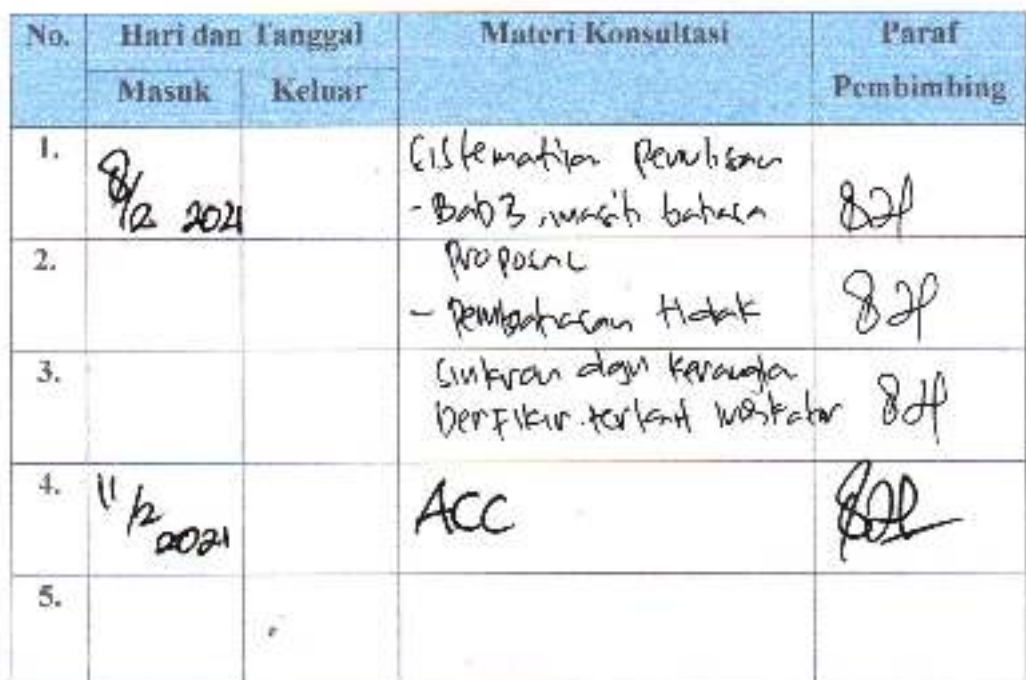 No. Hari dan Tanggal Materi Konsultasi Paraf
Masuk Keluar Pembimbing
1. 8/2 2021 Sistematika Penulisan
- Bab 3, masih bahasa
2. proposal
- Pembahasan tidak
3. sinkron dgn kerangka
berfikir terkait indikator
4. 11/2 2021 ACC
5.